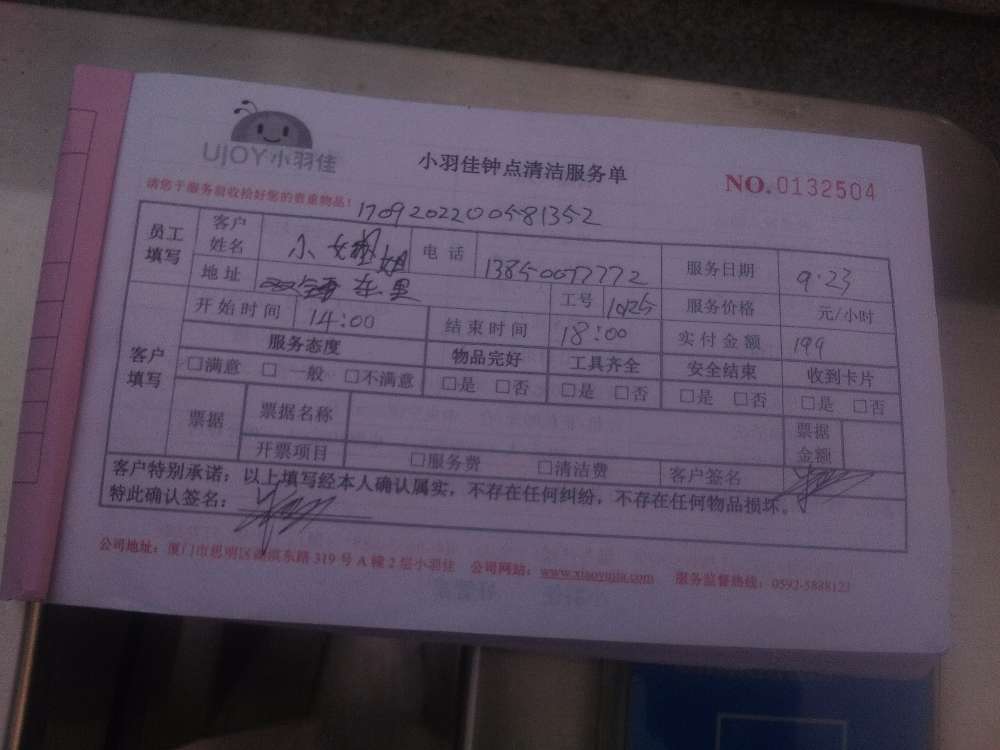 UJOY小羽佳
小羽佳钟点清洁服务单
NO.0132504
请您于服务前收拾好您的贵重物品！
1709202200581352
员工填写 客户姓名 小 姐 电话 13850077772 服务日期 9.23
地址 东里 工号 1025 服务价格 元/小时
开始时间 14:00 结束时间 18:00 实付金额 199
客户填写 服务态度 物品完好 工具齐全 安全结束 收到卡片
□满意 □一般 □不满意 □是 □否 □是 □否 □是 □否 □是 □否
票据 票据名称 票据金额
开票项目 □服务费 □清洁费 客户签名
客户特别承诺：以上填写经本人确认属实，不存在任何纠纷，不存在任何物品损坏。
特此确认签名：
公司地址：厦门市思明区湖滨东路319号A幢2层小羽佳 公司网站：www.xiaoyujia.com 服务监督热线：0592-5888123